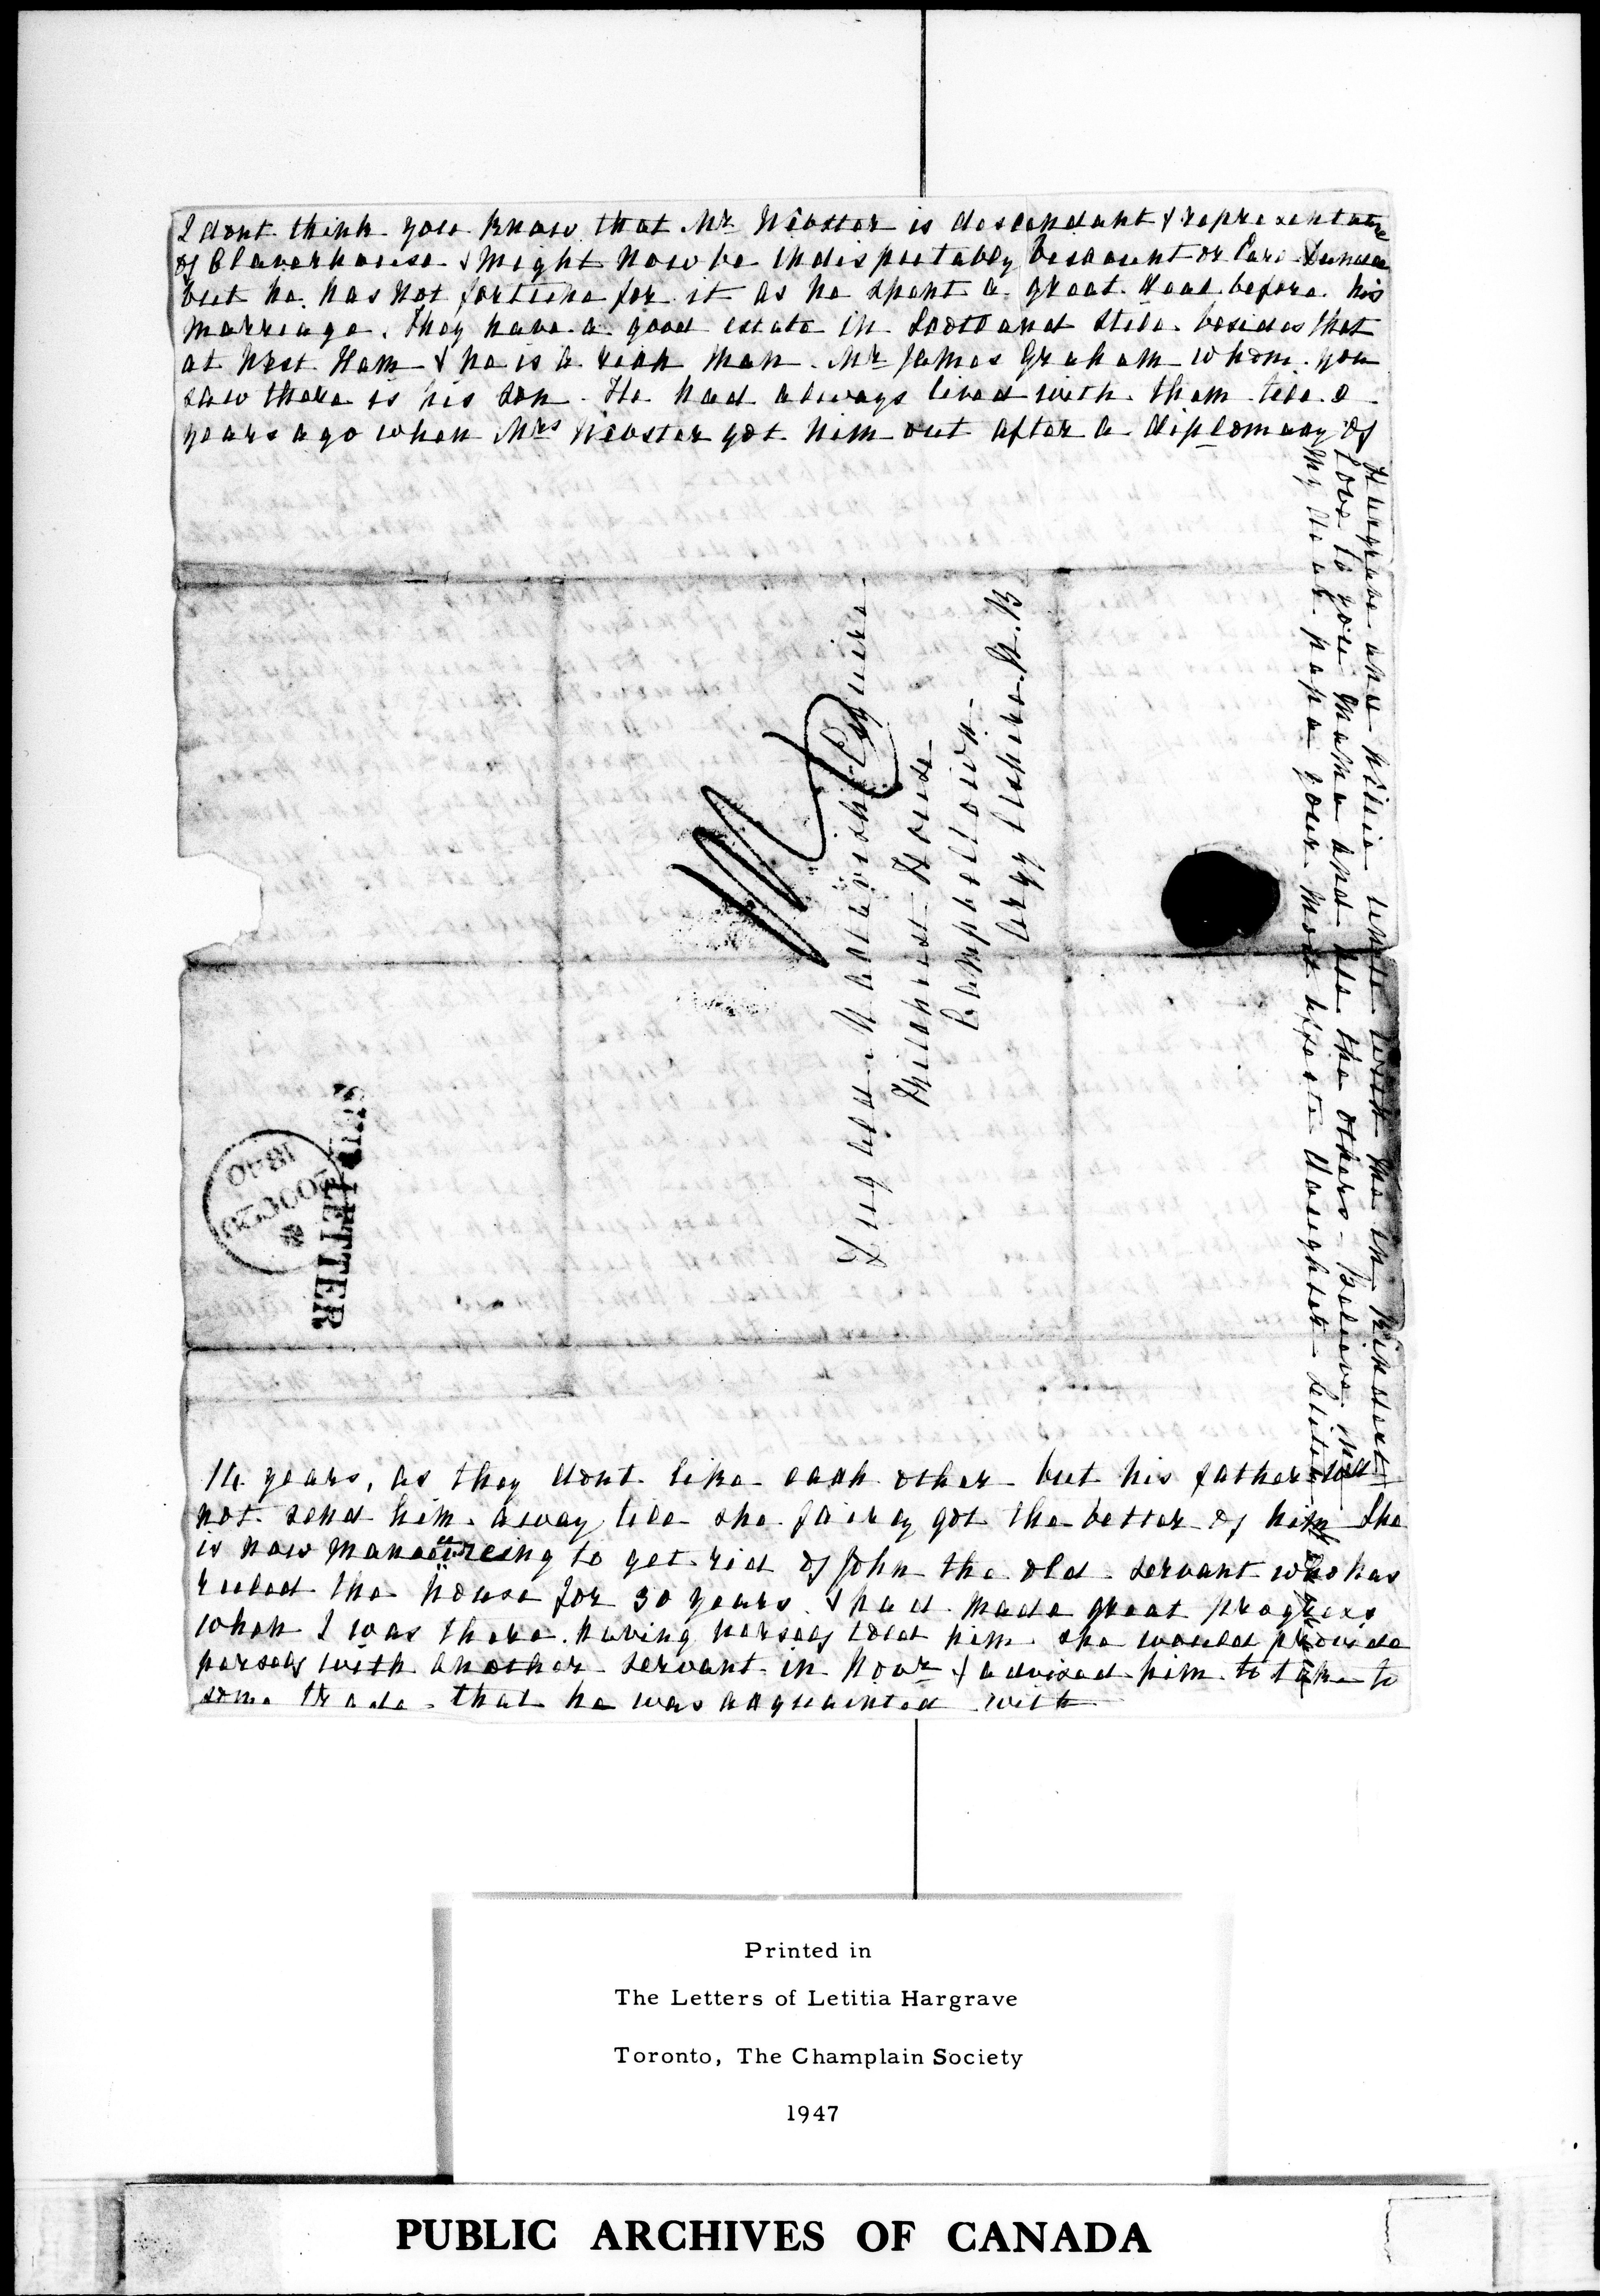 I dont think you know that Mr Webster is descendant & representative
of Claverhouse & might now be indisputably Viscount or Earl Dundee
but he has not fortune for it as he spent a great deal before his
marriage. They have a good estate in Scotland still besides that
at West Ham & he is a rich man. Mr James Graham whom you
saw there is his son. He had always lived with them till 2
years ago when Mrs Webster got him out after a diplomacy of
14 years, as they dont like each other but his father
not send him away till she fairly got the better of him She
is now manœuvreing to get rid of John the old servant who has
ruled the house for 30 years. & had made great progress
when I was there having herself told him she would provide
herself with another servant in Novr & advised him to take to
some trade that he was acquainted with
Hargrave and Willie unite with me in kindest
love to you Mama and all the others - Believe me
My dear papa your most affecte Daughter Letitia Hargrave
Dugald Mactavish Esquire
Kilchrist House
Campbelltown
Argyllshire. N.B
SHIP LETTER
20 OC 20
1840
Printed in
The Letters of Letitia Hargrave
Toronto, The Champlain Society
1947
PUBLIC ARCHIVES OF CANADA